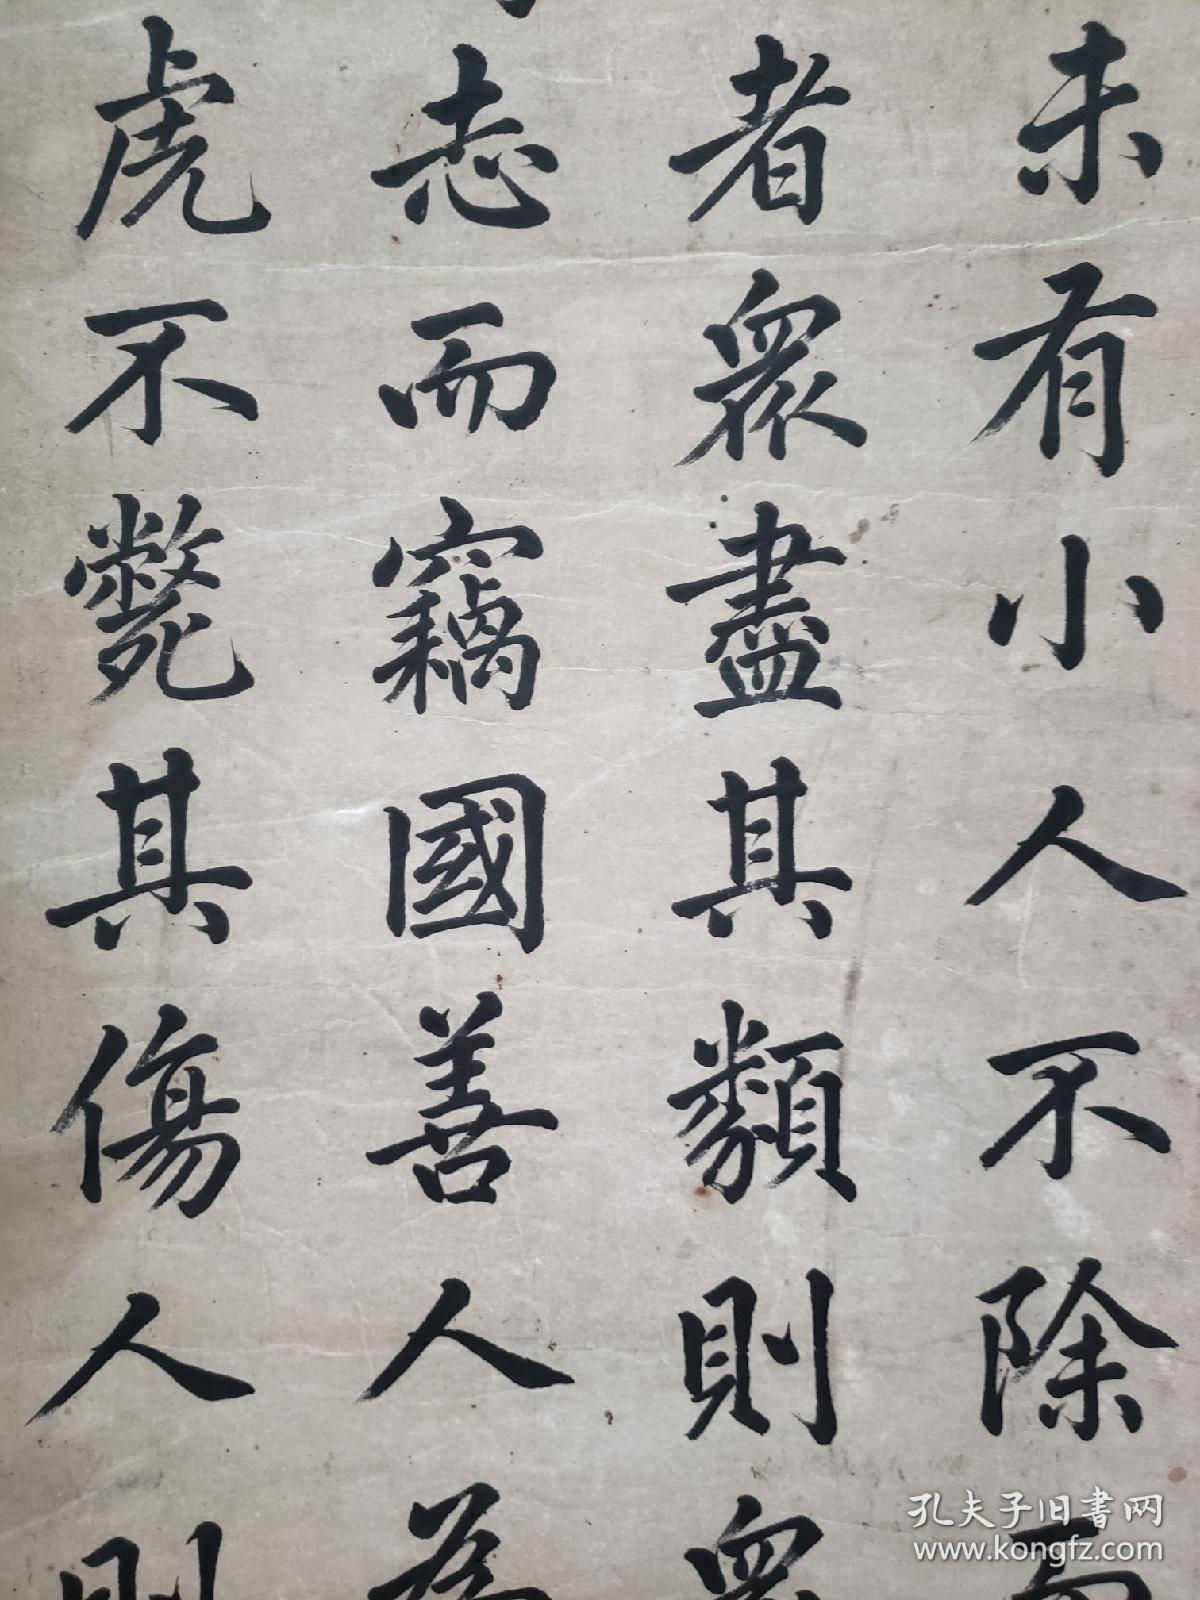 未有小人不除而
者眾盡其類則眾
志而竊國善人為
虎不斃其傷人則
孔夫子旧書网
www.kongfz.com